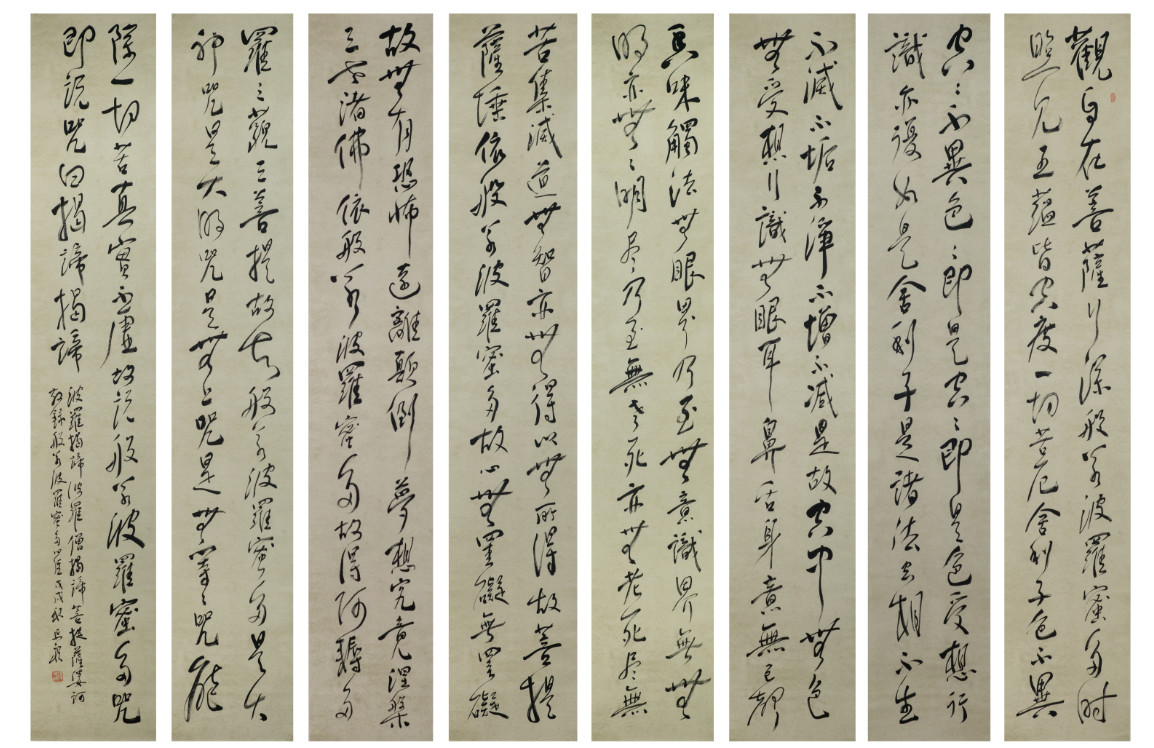 觀自在菩薩行深般若波羅蜜多時
照見五蘊皆空度一切苦厄舍利子色不異
空〻不異色〻即是空〻即是色受想行
識亦復如是舍利子是諸法空相不生
不滅不垢不淨不增不減是故空中無色
無受想行識無眼耳鼻舌身意無色聲
香味觸法無眼界乃至無意識界無無
明亦無〻明尽乃至無老死亦無老死尽無
苦集滅道無智亦無得以無所得故菩提
薩埵依般若波羅蜜多故心無罣礙無罣礙
故無有恐怖遠離顛倒夢想究竟涅槃
三世諸佛依般若波羅蜜多故得阿耨多
羅三藐三菩提故知般若波羅蜜多是大
神咒是大明咒是無上咒是無等〻咒能
除一切苦真實不虛故說般若波羅蜜多咒
即說咒曰揭諦揭諦
波羅揭諦波羅僧揭諦菩提薩婆訶
敬錄般若波羅蜜多心經戊戌秋